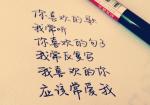 你喜欢的歌
我常听
你喜欢的句子
我常反复写
我喜欢的你
应该常爱我